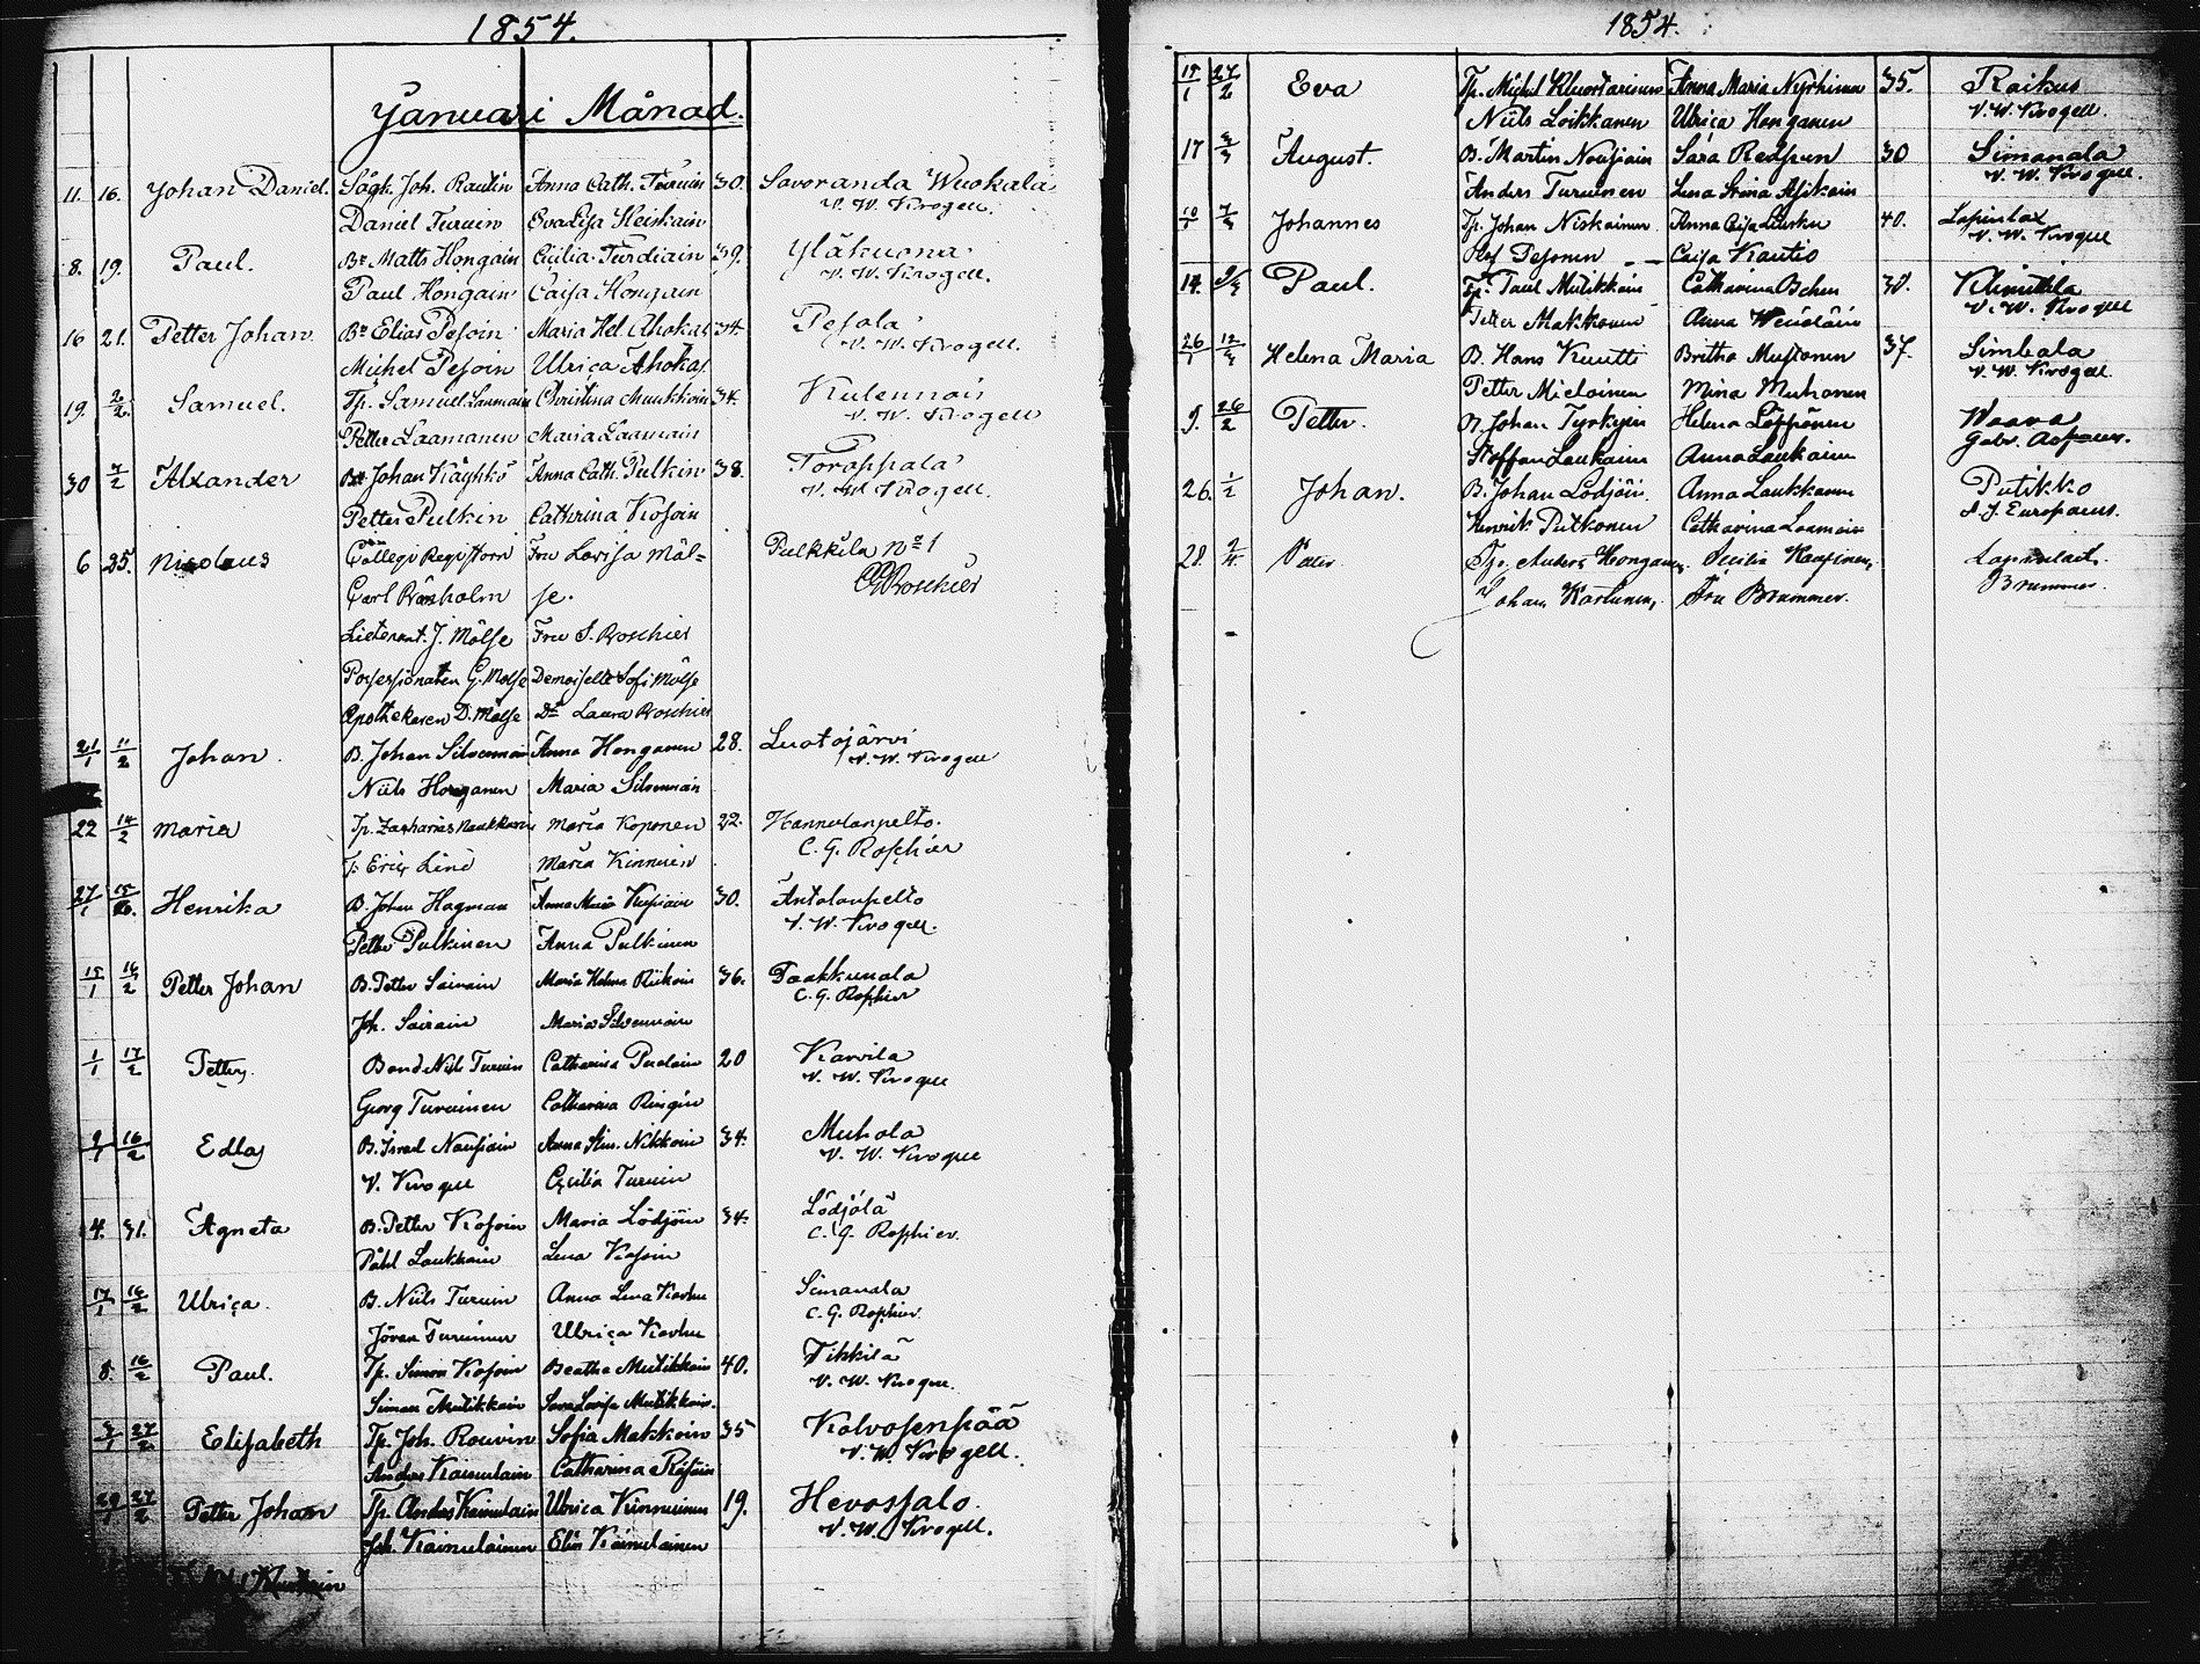 1854.
Januari Månad.
11. 16. Johan Daniel. Sågk. Joh. Rautin Anna Cath. Turuin 30. Savoranda Wuokala
Daniel Turuin Eva Lisa Heiskain V. W. Krogell.
8. 19. Paul. Br Matts Hongain Cicilia Turdiain 39. Yläkuona
Paul Hongain Caisa Hongain V. W. Krogell.
16 21. Petter Johan. Br Elias Pesoin Maria Hel. Ahokas 34. Pesola
Michel Pesoin Ulrica Ahokas V. W. Krogell.
19. 2/2. Samuel. Tp. Samuel Laamain Christina Muukkoin 34. Kulennoi
Petter Laamanen Maria Laamain V. W. Krogell
30 4/2 Alxander Br Johan Käyhkö Anna Cath. Pulkin 38. Toroppala
Petter Pulkin Cathrina Kosoin V. W. Krogell.
6 25. Nicolaus Collegi Registorn Fru Lovisa Möl= Pulkkila No 1
Carl Rönholm se. CGRoschier
Lieutenant. J. Mölse Fru S. Roschier
Possessionaten G. Mölse Demoiselle Sofi Mölse
Apothekaren D. Mölse Dn Laura Roschier
21/1 11/2 Johan. B. Johan Silvennoin Anna Honganen 28. Luotojärvi
Niils Honganen Maria Silvennoin V. W. Krogell
22 14/2 Maria Tp. Zacharias Naukkarin Maria Koponen 22. Hannolanpelto.
T. Eric Lind Maria Kinnuin C. G. Roschier
27/1 15/2. Henrika B. Johan Hagman Anna Maria Kupiain 30. Antolanpelto
Petter Pulkinen Anna Pulkinen V. W. Krogell.
15/1 16/2 Petter Johan B. Petter Sairain Maria Helena Riikoin 36. Paakkunala
Joh. Sairain Maria Silvennoin C. G. Roschier
1/1 17/2 Petter. Bond. Nils Turuin Catharina Puolain 20 Karvila
Georg Turuinen Catharina V. W. Krogell
9/1 16/2 Edla B. Israel Nousiain Anna Stin. Nikkoin 34. Muhola
V. Krogell Cecilia Turuin V. W. Krogell
4. 31. Agneta B. Petter Kosoin Maria Lödjöin 34. Lödjölä
Påhl Laukkain Lena Kosoin C. G. Roschier.
17/1 16/2 Ulrica. B. Niils Turuin Anna Lena Karhu Simanala
Jöran Turuinen Ulrica Karhu C. G. Roschier
8. 16/2 Paul. Tp. Simon Kosoin Beatha Mutikkain 40. Tikkilä
Simon Mutikkain Sara Lovisa Mutikkain. V. W. Krogell.
3/1 27/2 Elisabeth Tp. Joh. Rouvin Sofia Makkoin 35 Kolvosenpää
Anders Kainulain Catharina Räsäin V. W. Krogell.
29/1 27/2 Petter Johan Tp. Anders Kainulain Ulrica Kinnuinen 19. Hevossalo.
Joh. Kainulainen Elin Kainulainen V. W. Krogell.
1854.
15/1 27/2 Eva Tp. Michel Anna Maria Nyrhinen 35. Raikuu
Niils Loikkanen Ulrica Honganen V. W. Krogell.
17 4/3 August. B. Martin Nousiain Sara Redsven 30 Simanala
Anders Turuinen Lena Stina Asikain V. W. Krogell.
10/1 4/3 Johannes Tp. Johan Niskainen Anna Caisa Liusku 40. Lapinlax
Olof Pesonen - - Caisa Kautio V. W. Krogell
14. Paul. Tp. Paul Mutikkain Catharina Behm 30. Klimitilä
Petter Makkonen Anna Wenäläin V. W. Krogell
26/1 12/3 Helena Maria B. Hans Kuutti Britha Mustonen 37. Simbala
Petter Mieloinen Mina Muhonen V. W. Krogell.
9. 26/2 Petter. B. Johan Tyrkyin Helena Löppönen Waara
Staffan Laukain Anna Laukain Gabr.
26. 1/2 Johan. B. Johan Lödjöin. Anna Laukkanen Putikko
Henrik Putkonen Catharina Laamain A. J. Europaeus.
28. 2/4. Tp. Anders Honganen. Cecilia Lapinlaks.
Johan Karhunen, Fru Brummer. Brummer.